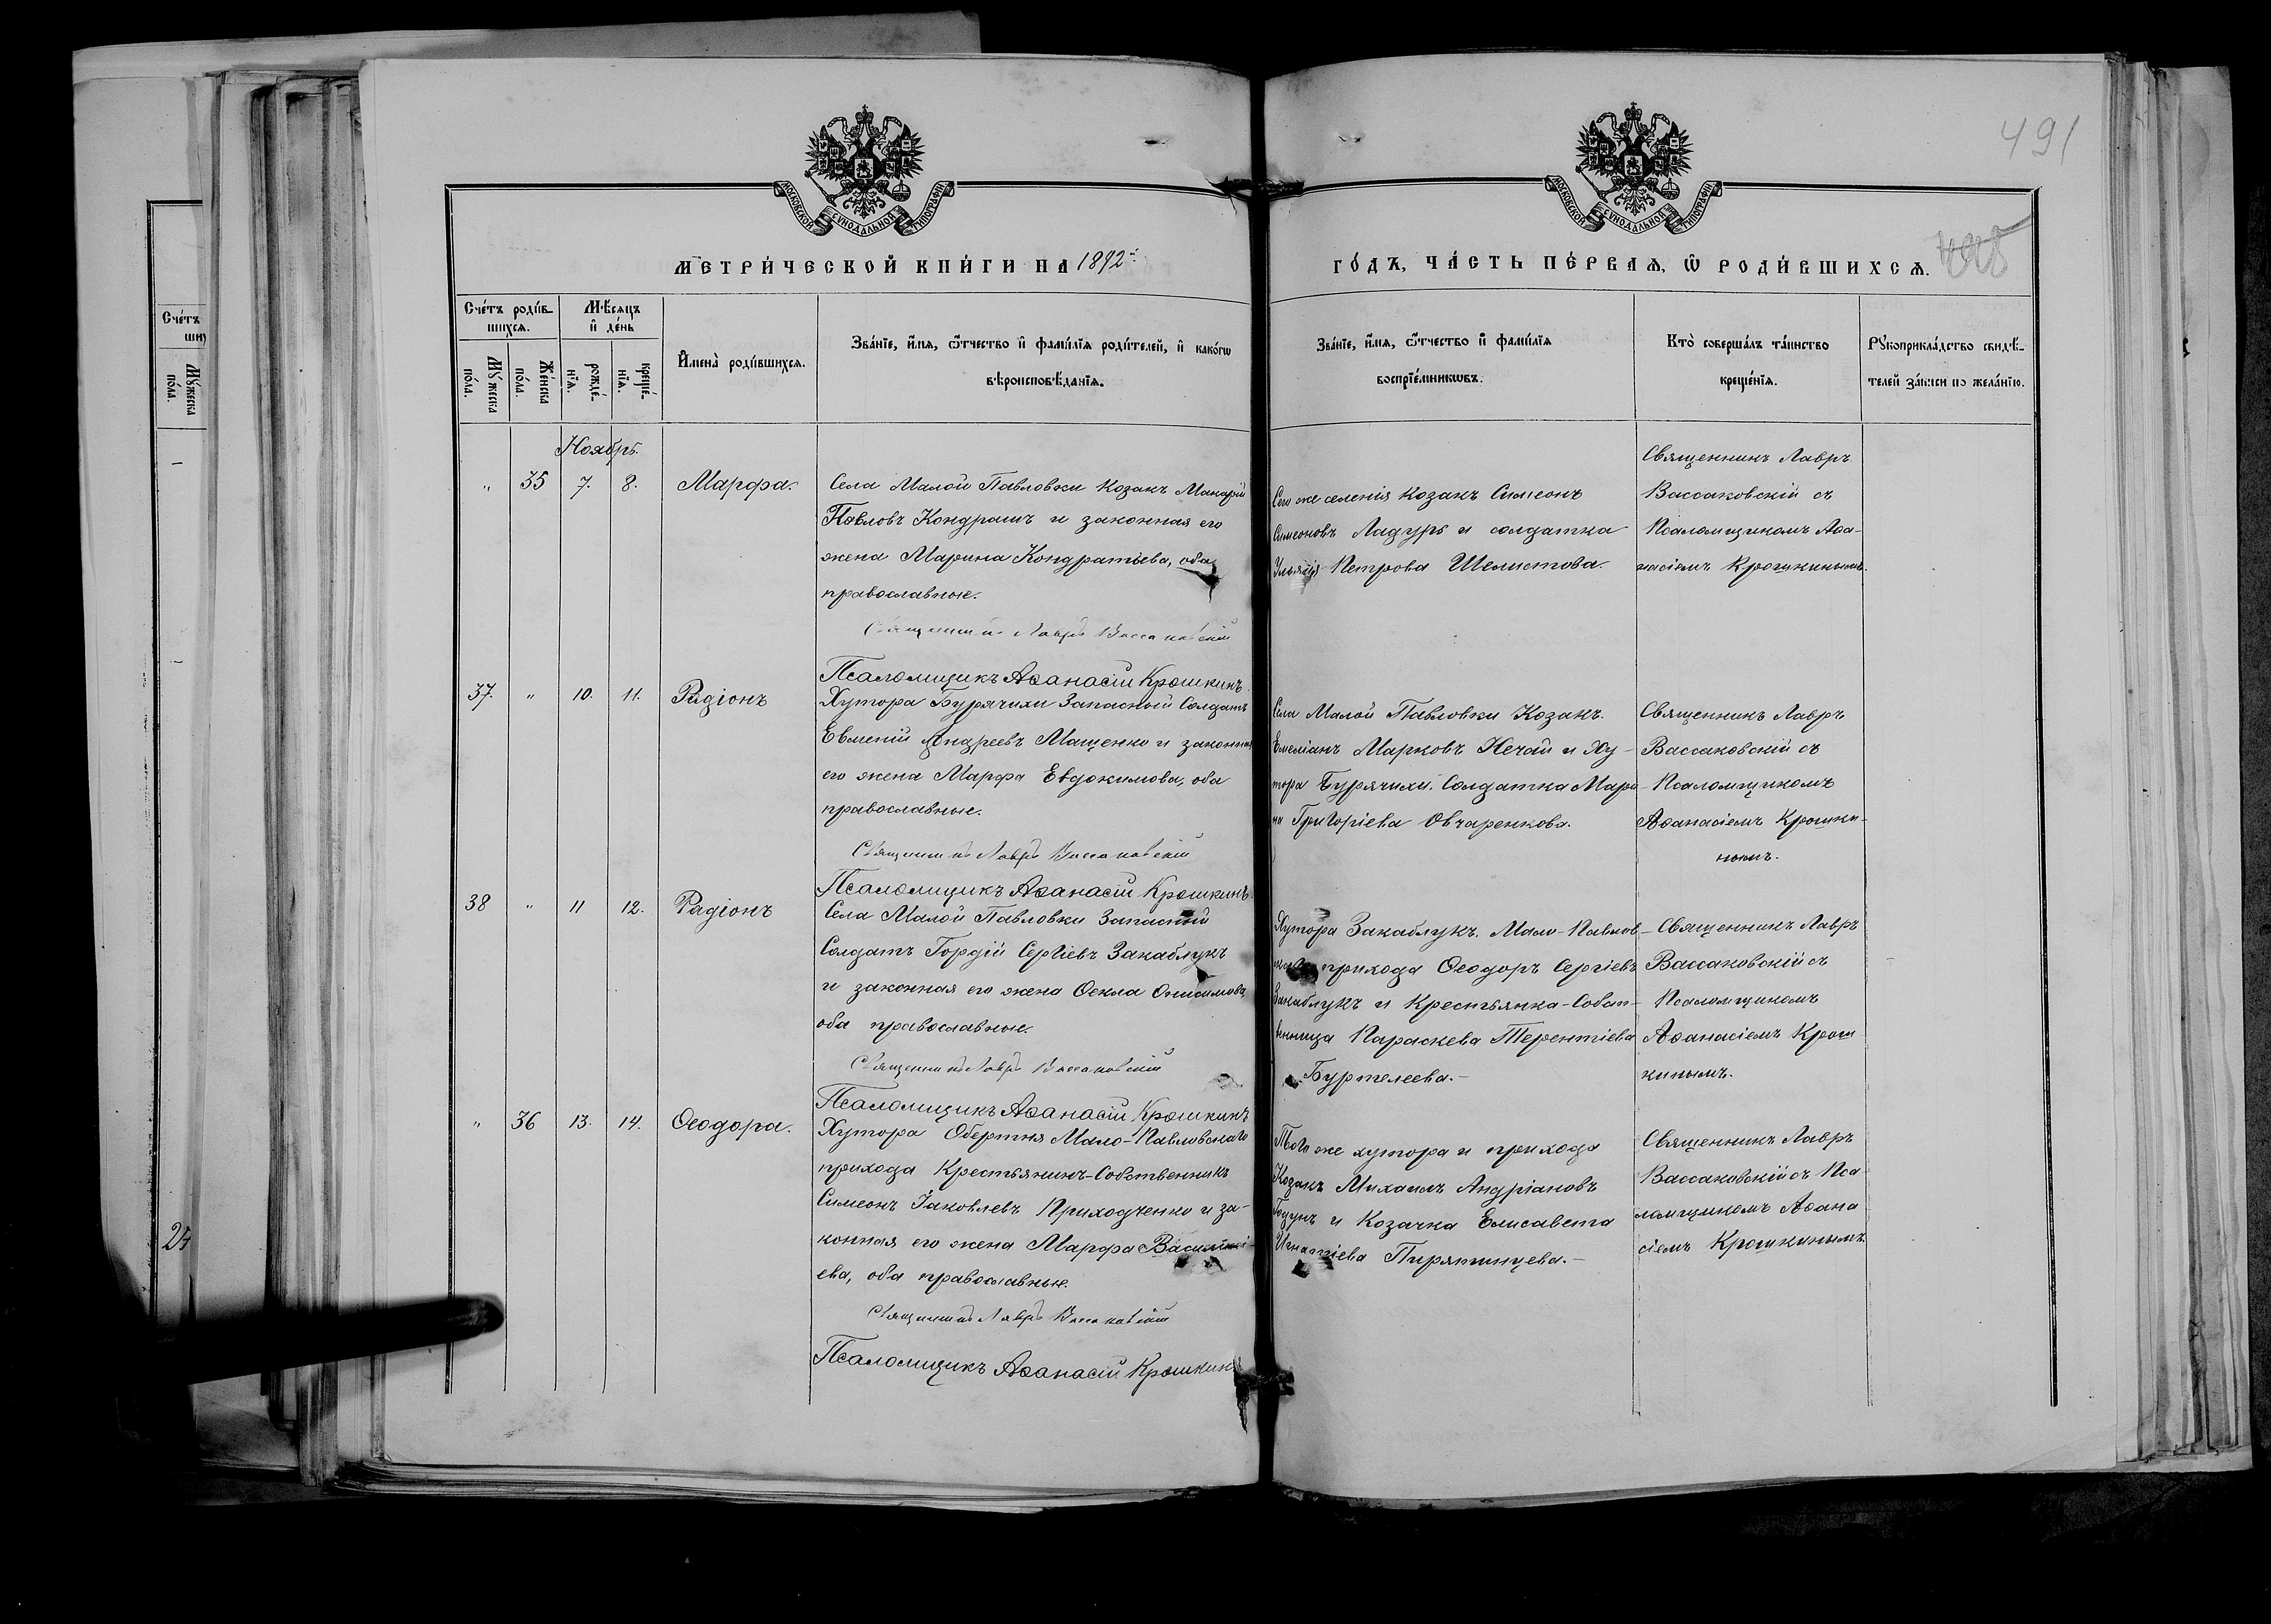 491
МОСКОВСКОЙ СѴНОДАЛЬНОЙ ТИПОГРАФІИ
МОСКОВСКОЙ СѴНОДАЛЬНОЙ ТИПОГРАФІИ
МЕТРИ́ЧЕСКОЙ КНИ́ГИ НА 1892й
ГО́ДЪ, ЧА́СТЬ ПЕ́РВАѦ, Ѿ РОДИ́ВШИХСѦ.
Сче́тъ роди́в-
шихсѧ.
Мꙋ́жеска
по́ла.
Же́нска
по́ла.
М҆ѣсѧцъ
и҆ де́нь
рожде́-
нїѧ.
креще́-
нїѧ.
И҆мена̀ роди́вшихсѧ.
Зва́нїе, и҆́мѧ, ѻ҆́тчество и҆ фами́лїѧ роди́телей, и҆ како́гѡ
вѣроисповѣ́данїѧ.
Зва́нїе, и҆́мѧ, ѻ҆́тчество и҆ фами́лїѧ
воспрїе́мникѡвъ.
Кто̀ соверша́лъ та́инство
креще́нїѧ.
Рꙋкоприкла́дство свидѣ́-
телей за́писи по жела́нїю.
Ноябрь.
" 35 7. 8. Марфа.
Села Малой Павловки Козакъ Макарій
Павловъ Кондрашъ и законная его
жена Марина Кондратьева, оба
православные.
Священникъ Лавръ Вассаковскій
Псаломщикъ Аѳанасій Крошкинъ.
Сего же селенія Козакъ Симеонъ
Симеоновъ Ладуръ и солдатка
Петрова Шелистова.
Священникъ Лавръ
Вассаковскій съ
Псаломщикомъ Аѳа-
насіемъ Крошкинымъ.
37. " 10. 11. Радіонъ
Хутора Бурячихи Запасный Солдатъ
Евменій Андреевъ Мащенко и законная
его жена Марфа Евдокимова, оба
православные.
Священникъ Лавръ Вассаковскій
Псаломщикъ Аѳанасій Крошкинъ.
Села Малой Павловки Козакъ.
Емеліанъ Марковъ Нечай и Ху-
тора Бурячихи. Солдатка Мари-
на Григоріева Овчаренкова.
Священникъ Лавръ
Вассаковскій съ
Псаломщикомъ
Аѳанасіемъ Крошки-
нымъ.
38 " 11 12. Радіонъ
Села Малой Павловки Запасный
Солдатъ Гордій Сергіевъ Закаблукъ
и законная его жена Ѳекла Онисимова,
оба православные.
Священникъ Лавръ Вассаковскій
Псаломщикъ Аѳанасій Крошкинъ
Хутора Закаблукъ. Мало-Павлов-
прихода Ѳеодоръ Сергіевъ
Закаблукъ и Крестьянка-Собст-
венница Параскева Терентіева
Буртелеева.-
Священникъ Лавръ
Вассаковскій съ
Псаломщикомъ
Аѳанасіемъ Крош
кинымъ.
" 36 13. 14. Ѳеодора.
Хутора Обертня Мало-Павловскаго
прихода Крестьянинъ-Собственникъ
Симеонъ Іаковлевъ Приходченко и за-
конная его жена Марфа Василі-
ева, оба православные.
Священникъ Лавръ Вассаковскій
Псаломщикъ Аѳанасій Крошкинъ
Того же хутора и прихода
Козакъ Михаилъ Андріановъ
и Козачка Елисавета
Игнатіева Пирятинцева.-
Священникъ Лавръ
Вассаковскій съ Пса
ломщикомъ Аѳана
сіемъ Крошкинымъ.
Сче́тъ
Мꙋ́жеска
по́ла.